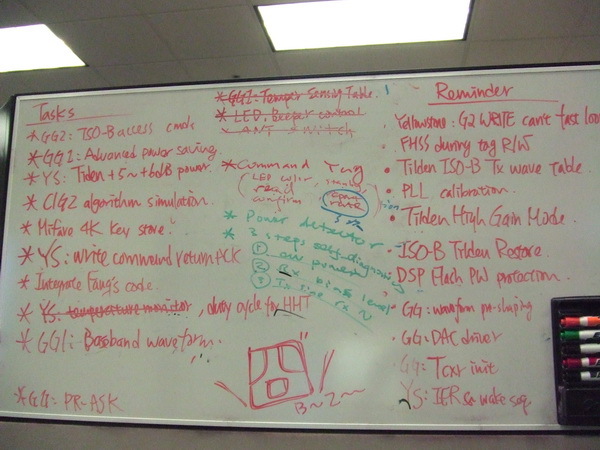 Tasks
* GG2: ISO-B access cmds
* GG1: Advanced power saving
* YS: Tilden +5~+6dB power.
* C1G2 algorithm simulation.
* Mifare 4K key store.
* YS: write command return ACK
* Integrate Fang's code.
* YS: temperature monitor, duty cycle for HHT
* GG1: Baseband waveform.
PR-ASK
* GG2: Temper Sensing Table.
* LED, Beeper control
* ANT switch
* Command Yng
LED color,
confirm
* Power detector
* 3 steps self-diagnosing
① low power
② Rx bias level
③ Tx sine rx ~
B~Z~
Reminder
Yellowstone: G2 WRITE can't fast
FHSS during tag R/W
• Tilden ISO-B Tx wave table.
• PLL calibration.
• Tilden High Gain Mode.
• ISO-B Tilden Restore.
DSP Flash PW protection.
• GG: waveform pre-shaping
• GG: DAC driver
init
YS: IER wake seq.